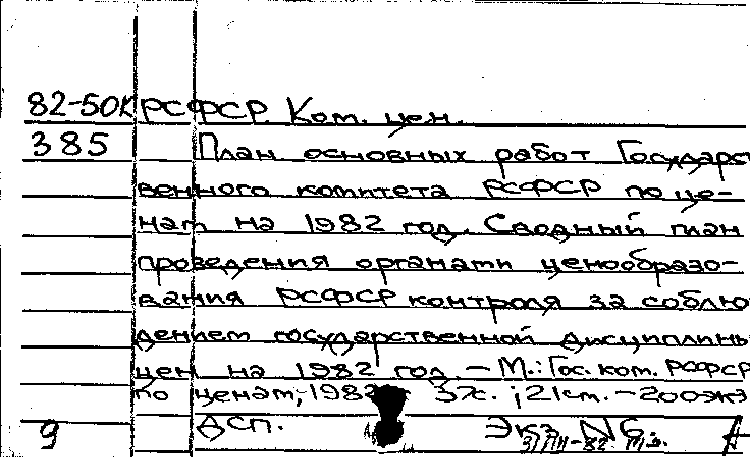 82-50К РСФСР. Ком. цен.
385 План основных работ Государст
венного комитета РСФСР по це-
нам на 1982 год. Сводный план
проведения органами ценообразо-
вания РСФСР контроля за соблю
дением государственной дисциплины
цен на 1982 год. – М.: Гос. ком. РСФСР
по ценам, 1982 37с. ; 21см. – 200экз
9 ДСП. Экз. N 6.